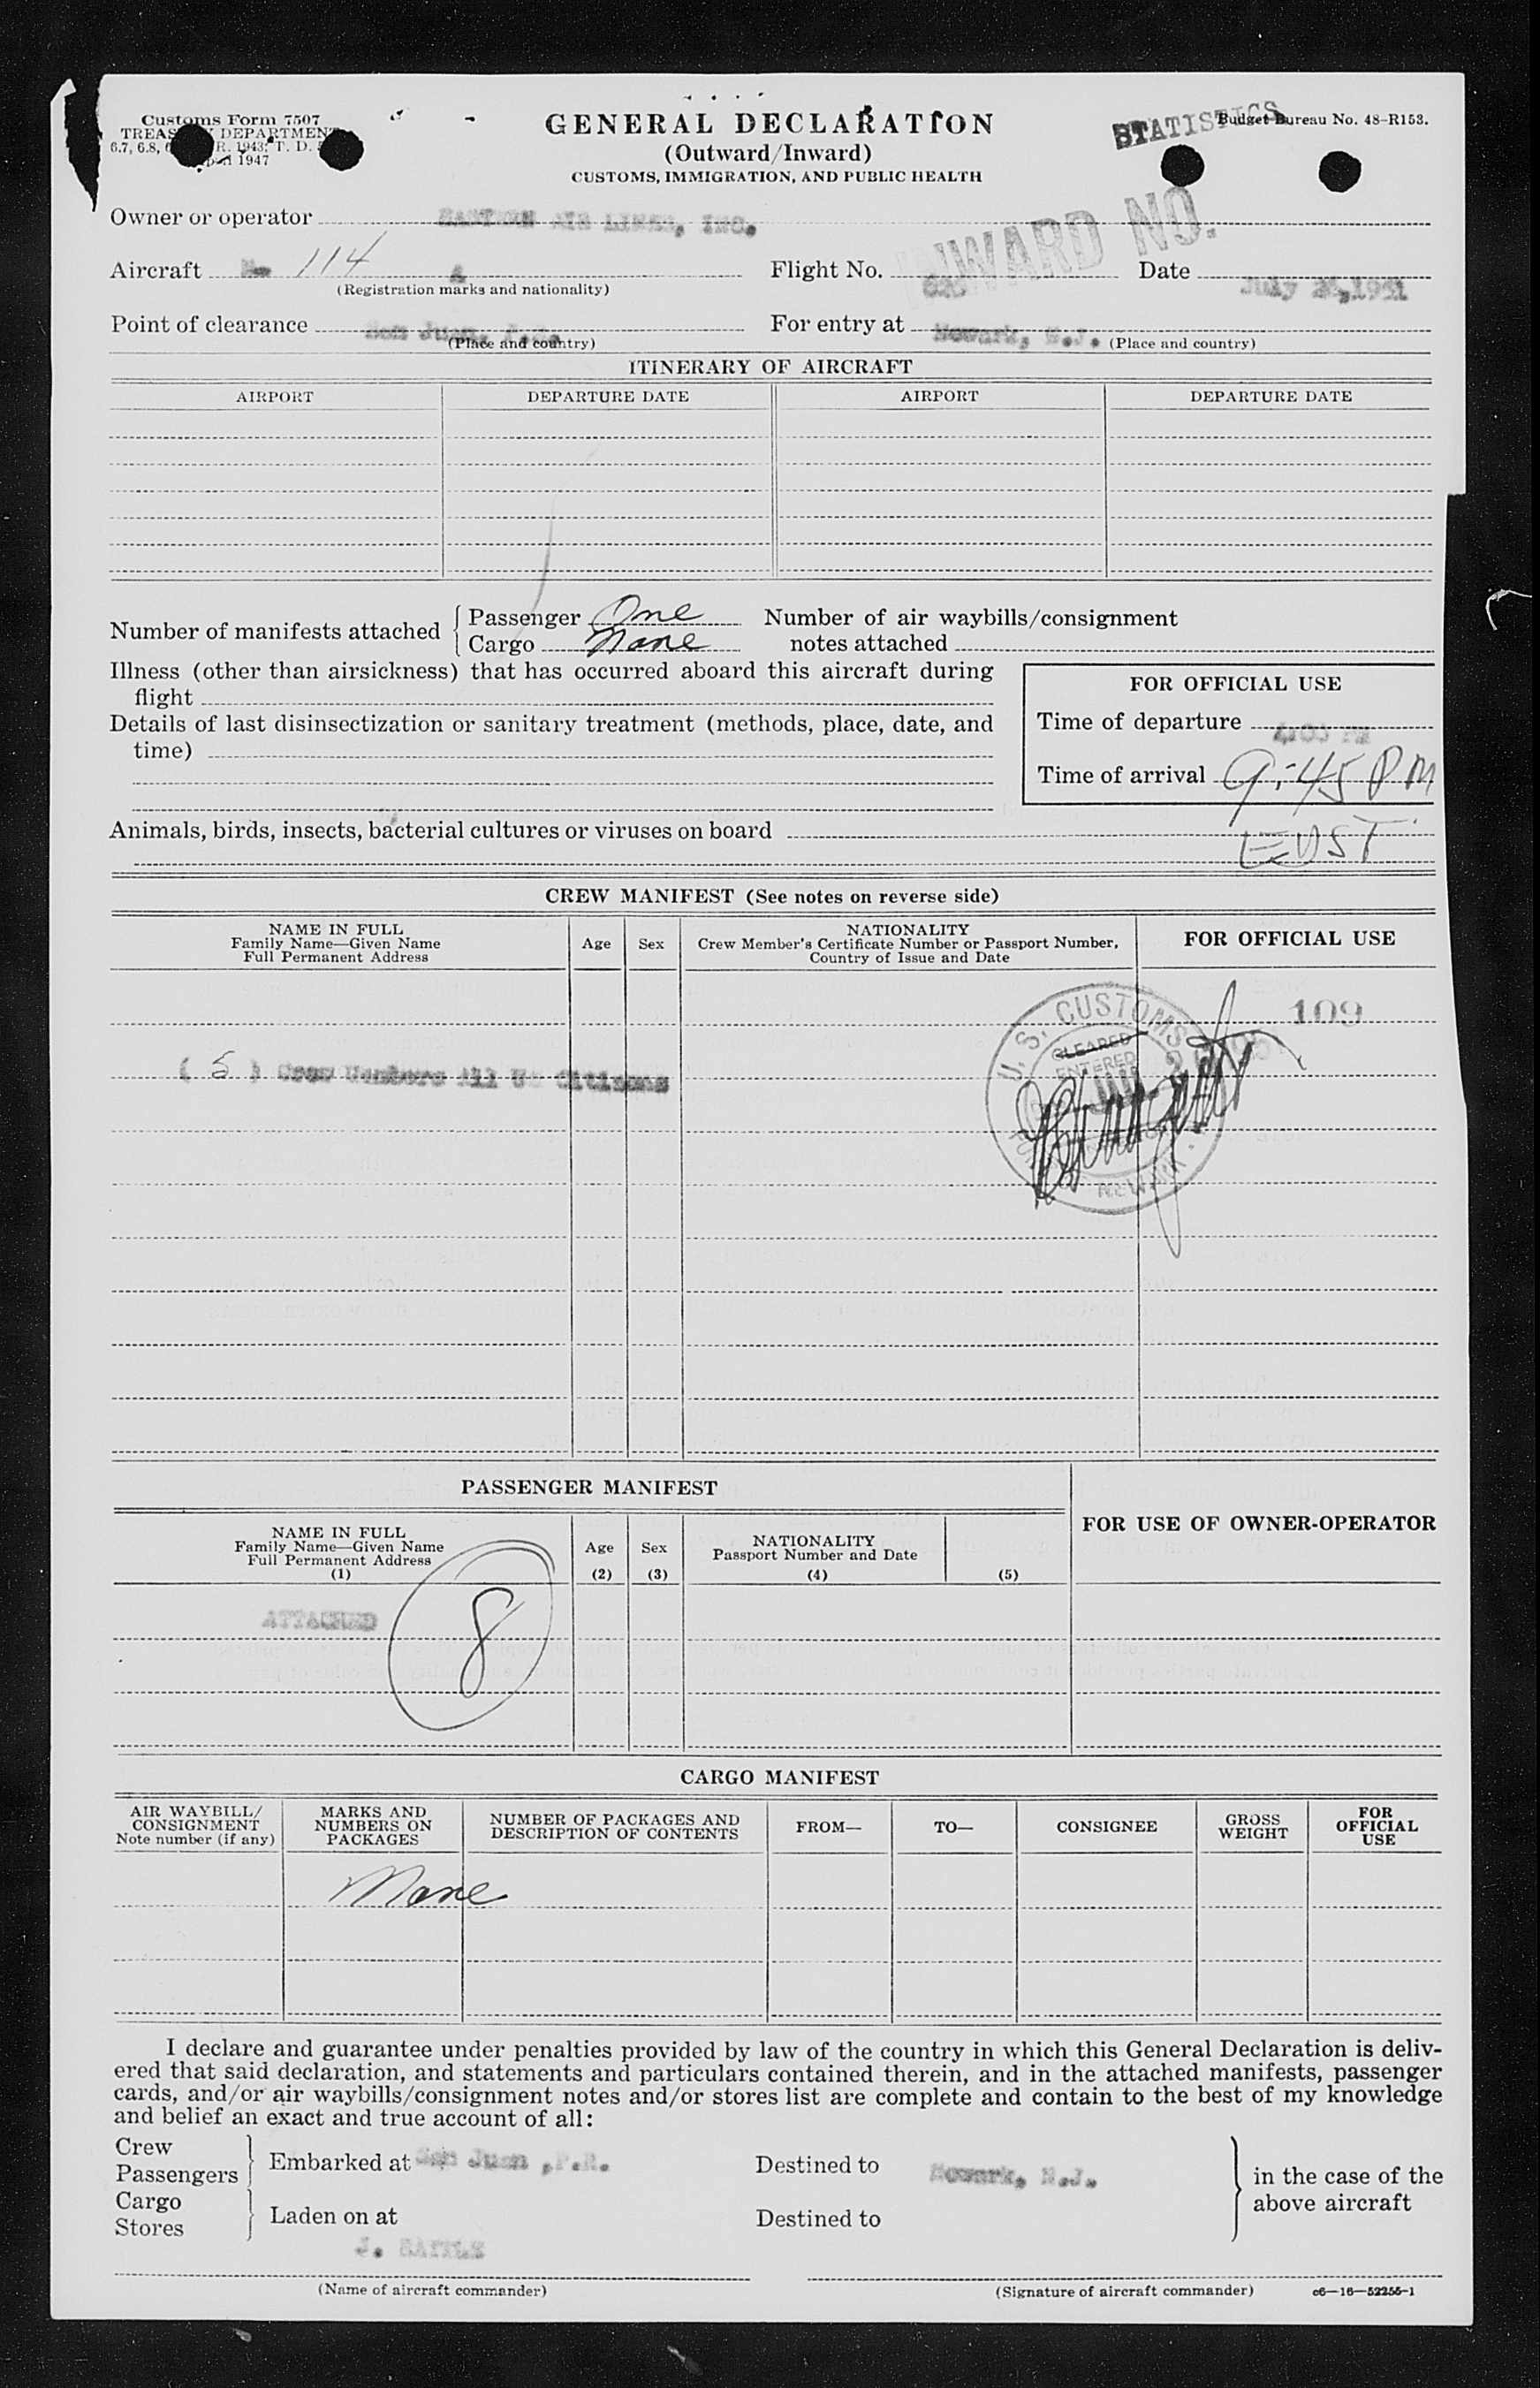 Customs Form 7507
TREASURY DEPARTMENT
6.7, 6.8, R. 1943; T. D.
1947
GENERAL DECLARATION
(Outward/Inward)
CUSTOMS, IMMIGRATION, AND PUBLIC HEALTH
STATISTICS
Budget Bureau No. 48-R153.
INWARD NO.
Owner or operator EASTERN AIR LINES, INC.
Aircraft 114 A Flight No. Date July 1951
(Registration marks and nationality)
Point of clearance San Juan, P.R. For entry at Newark, N.J.
(Place and country) (Place and country)
ITINERARY OF AIRCRAFT
AIRPORT DEPARTURE DATE AIRPORT DEPARTURE DATE
Number of manifests attached { Passenger One Number of air waybills/consignment
Cargo None notes attached
Illness (other than airsickness) that has occurred aboard this aircraft during
flight
Details of last disinsectization or sanitary treatment (methods, place, date, and
time)
FOR OFFICIAL USE
Time of departure
Time of arrival 9:45 PM
Animals, birds, insects, bacterial cultures or viruses on board
CREW MANIFEST (See notes on reverse side)
NAME IN FULL
Family Name—Given Name
Full Permanent Address
Age
Sex
NATIONALITY
Crew Member's Certificate Number or Passport Number,
Country of Issue and Date
FOR OFFICIAL USE
109
( 5 ) Crew Members All US Citizens
U. S. CUSTOMS
CLEARED
ENTERED
JUL
NEWARK
PASSENGER MANIFEST
FOR USE OF OWNER-OPERATOR
NAME IN FULL
Family Name—Given Name
Full Permanent Address
(1)
Age
(2)
Sex
(3)
NATIONALITY
Passport Number and Date
(4)
(5)
ATTACHED
8
CARGO MANIFEST
AIR WAYBILL/
CONSIGNMENT
Note number (if any)
MARKS AND
NUMBERS ON
PACKAGES
NUMBER OF PACKAGES AND
DESCRIPTION OF CONTENTS
FROM—
TO—
CONSIGNEE
GROSS
WEIGHT
FOR
OFFICIAL
USE
None
I declare and guarantee under penalties provided by law of the country in which this General Declaration is deliv-
ered that said declaration, and statements and particulars contained therein, and in the attached manifests, passenger
cards, and/or air waybills/consignment notes and/or stores list are complete and contain to the best of my knowledge
and belief an exact and true account of all:
Crew
Passengers } Embarked at San Juan ,P.R. Destined to Newark, N.J.
Cargo
Stores } Laden on at Destined to
in the case of the
above aircraft
J.
(Name of aircraft commander) (Signature of aircraft commander) c6—16—52255-1